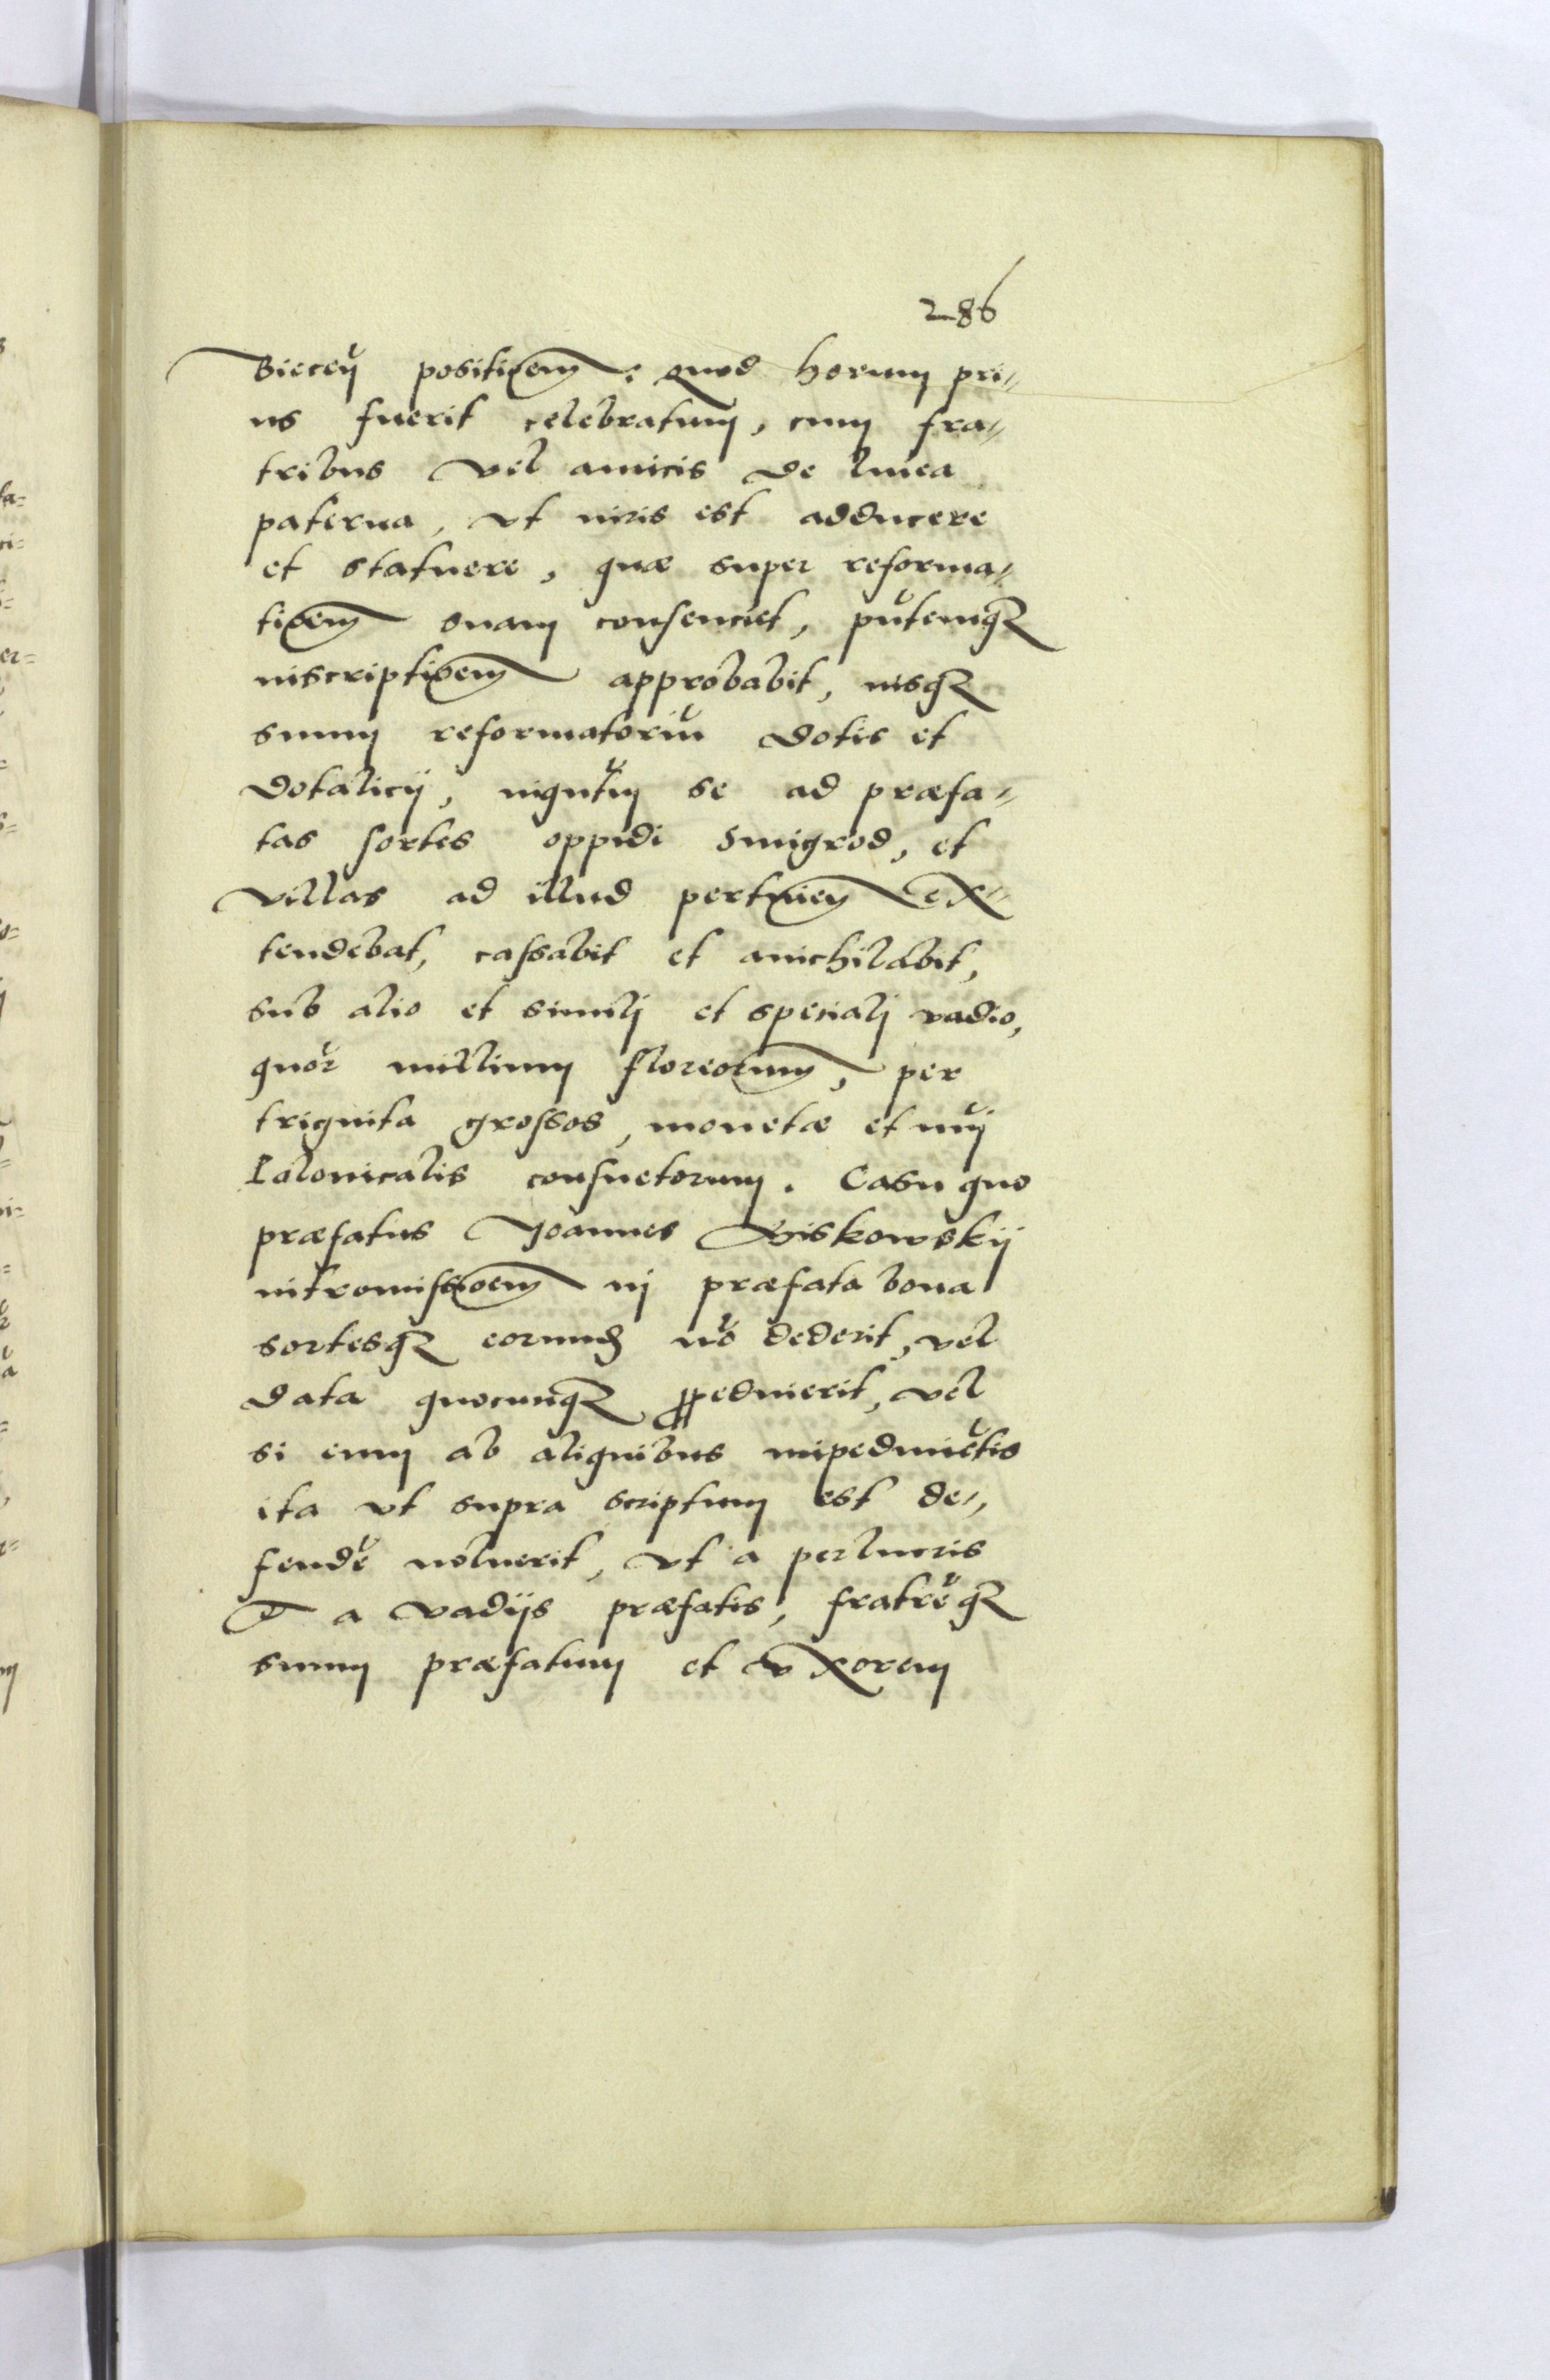 286
Biecen̄ positi͠oem: quod horum pri=
us fuerit celebratum, cum fra=
tribus vel amicis de linea
paterna, vt iuris est adducere
et statuere, quæ super reforma=
ti͠oem suam consenciet, pn̄temq3
inscripti͠oem approbabit, iusq3
suum reformatoriū dotis et
dotalicij, inqn̄tum se ad præfa=
tas sortes oppidi Smigrod, et
villas ad illud pertinen̄ ex=
tendebat, cassabit et anichilabit,
sub alio et simili et speciali vadio,
quor̄ millium florenorum, per
triginta grossos, monetæ et nūi
Polonicalis consuetorum. Casu quo
præfatus Joannes Wiskowskij
intromissi͠oem in præfata bona
sortesq3 eorund̄ nō dederit, vel
data quocunq3 ꝓpedierit, vel
si eum ab aliquibus impedimētis
ita vt supra scriptum est de=
fendē noluerit, vt a perlucris
et a vadijs præfatis, fratrēq3
suum præfatum et vxorem